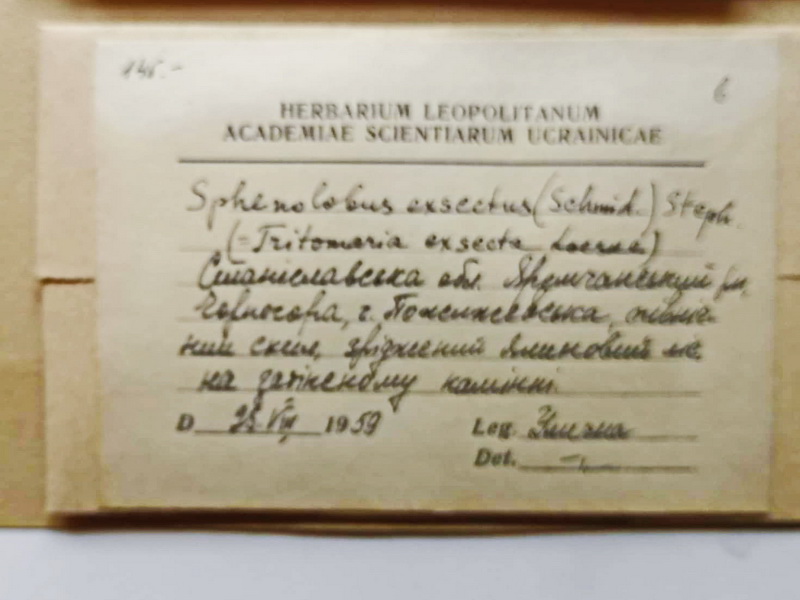 145.-
6
HERBARIUM LEOPOLITANUM
ACADEMIAE SCIENTIARUM UCRAINICAE
Sphenolobus exsectus (Schmid.) Steph.
(= Tritomaria exsecta Loeske)
Станіславська обл. Яремчанський рн,
Чорногора, г. Пожижевська, північ-
ний схил, зріджений ялиновий ліс
на затіненому камінні.
D 1959
Leg. Улична
Det. -"-